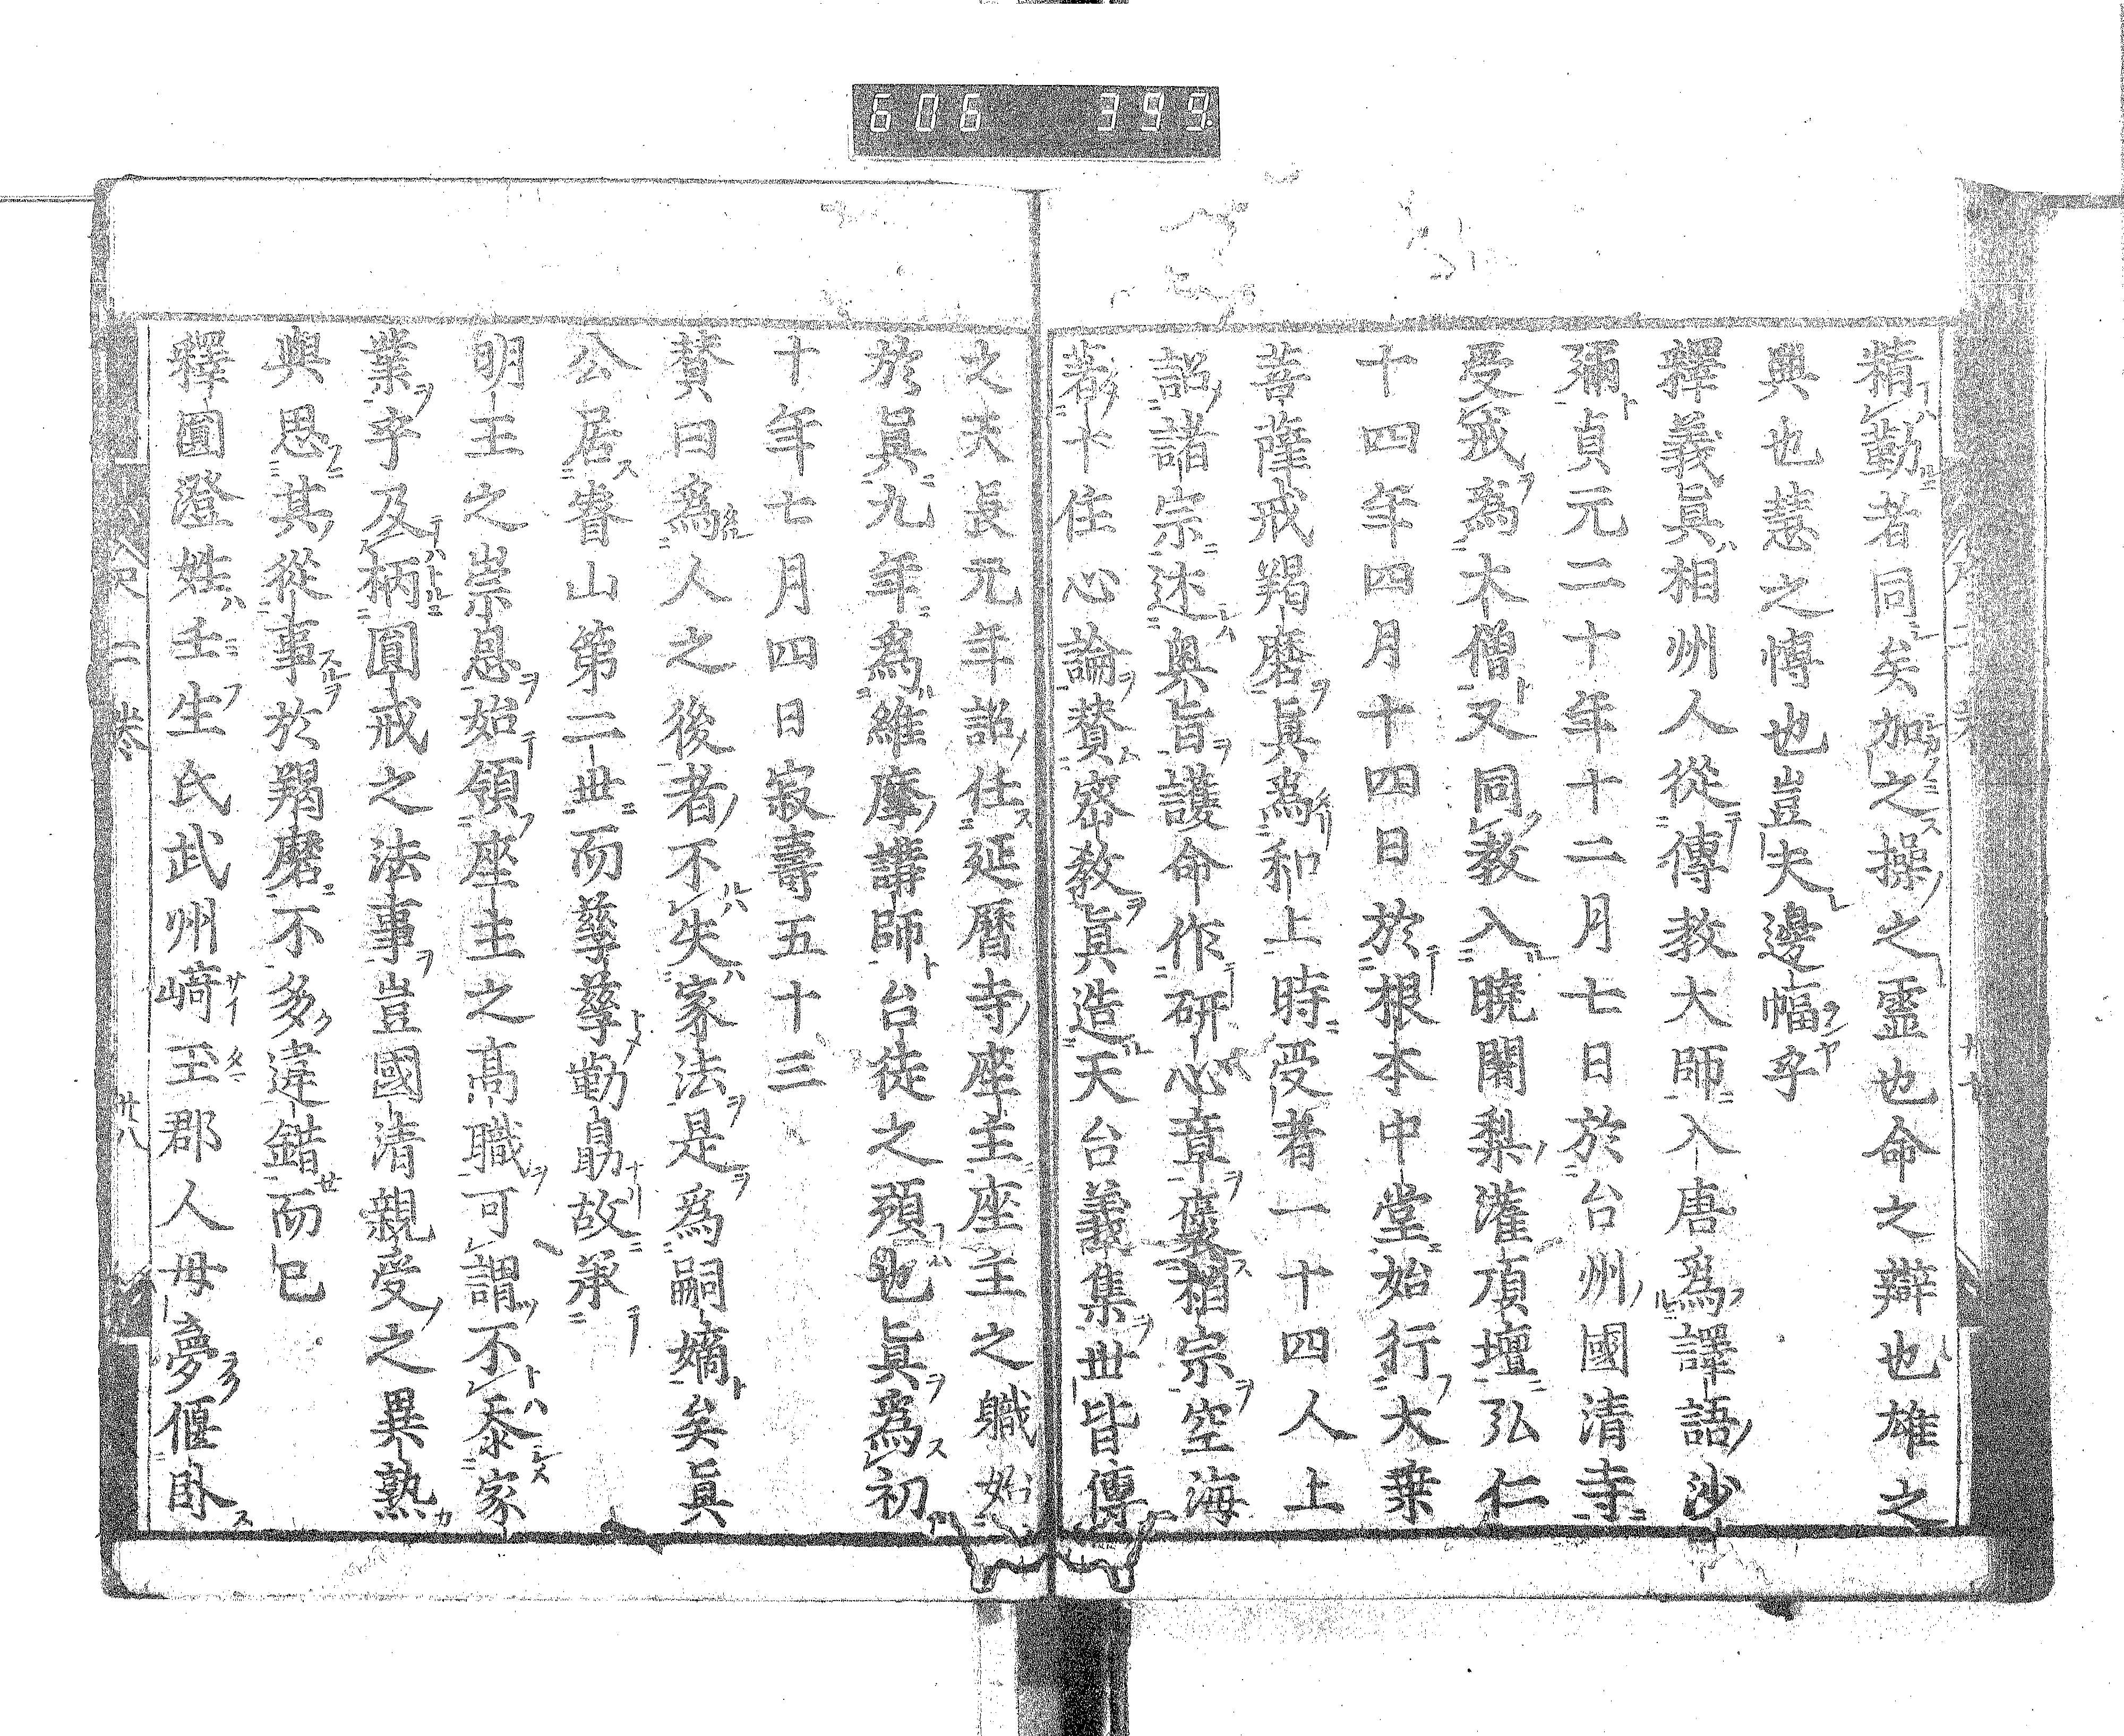 606 399
精勤者同矣加之操之霊也命之辯也雄之
興也慧之博也豈夫邊幅乎
釋義眞相州人從傳教大師入唐爲譯語沙
彌貞元二十年十二月七日於台州國清寺
受戒爲大僧又同教入曉闍梨灌頂壇弘仁
十四年四月十四日於根本中堂始行大乗
菩薩戒羯磨眞爲和上時受者一十四人上
詔諸宗述奥旨護命作研心章褒相宗空海
著十住心論賛密教眞造天台義集世皆傳
之天長元年詔住延曆寺座主座主之職始
於眞九年爲維摩講師台徒之預也眞爲初
十年七月四日寂壽五十三
賛曰爲人之後者不失家法是爲嗣嫡矣眞
公居睿山第二世而孳孳勤勗故承
明王之崇恩始領座主之高職可謂不忝家
業乎及柄圓戒之法事豈國清親受之異熟
與思其從事於羯磨不多違錯而已
釋圓澄姓壬生氏武州﨑玉郡人母夢偃卧
二卷
廿八